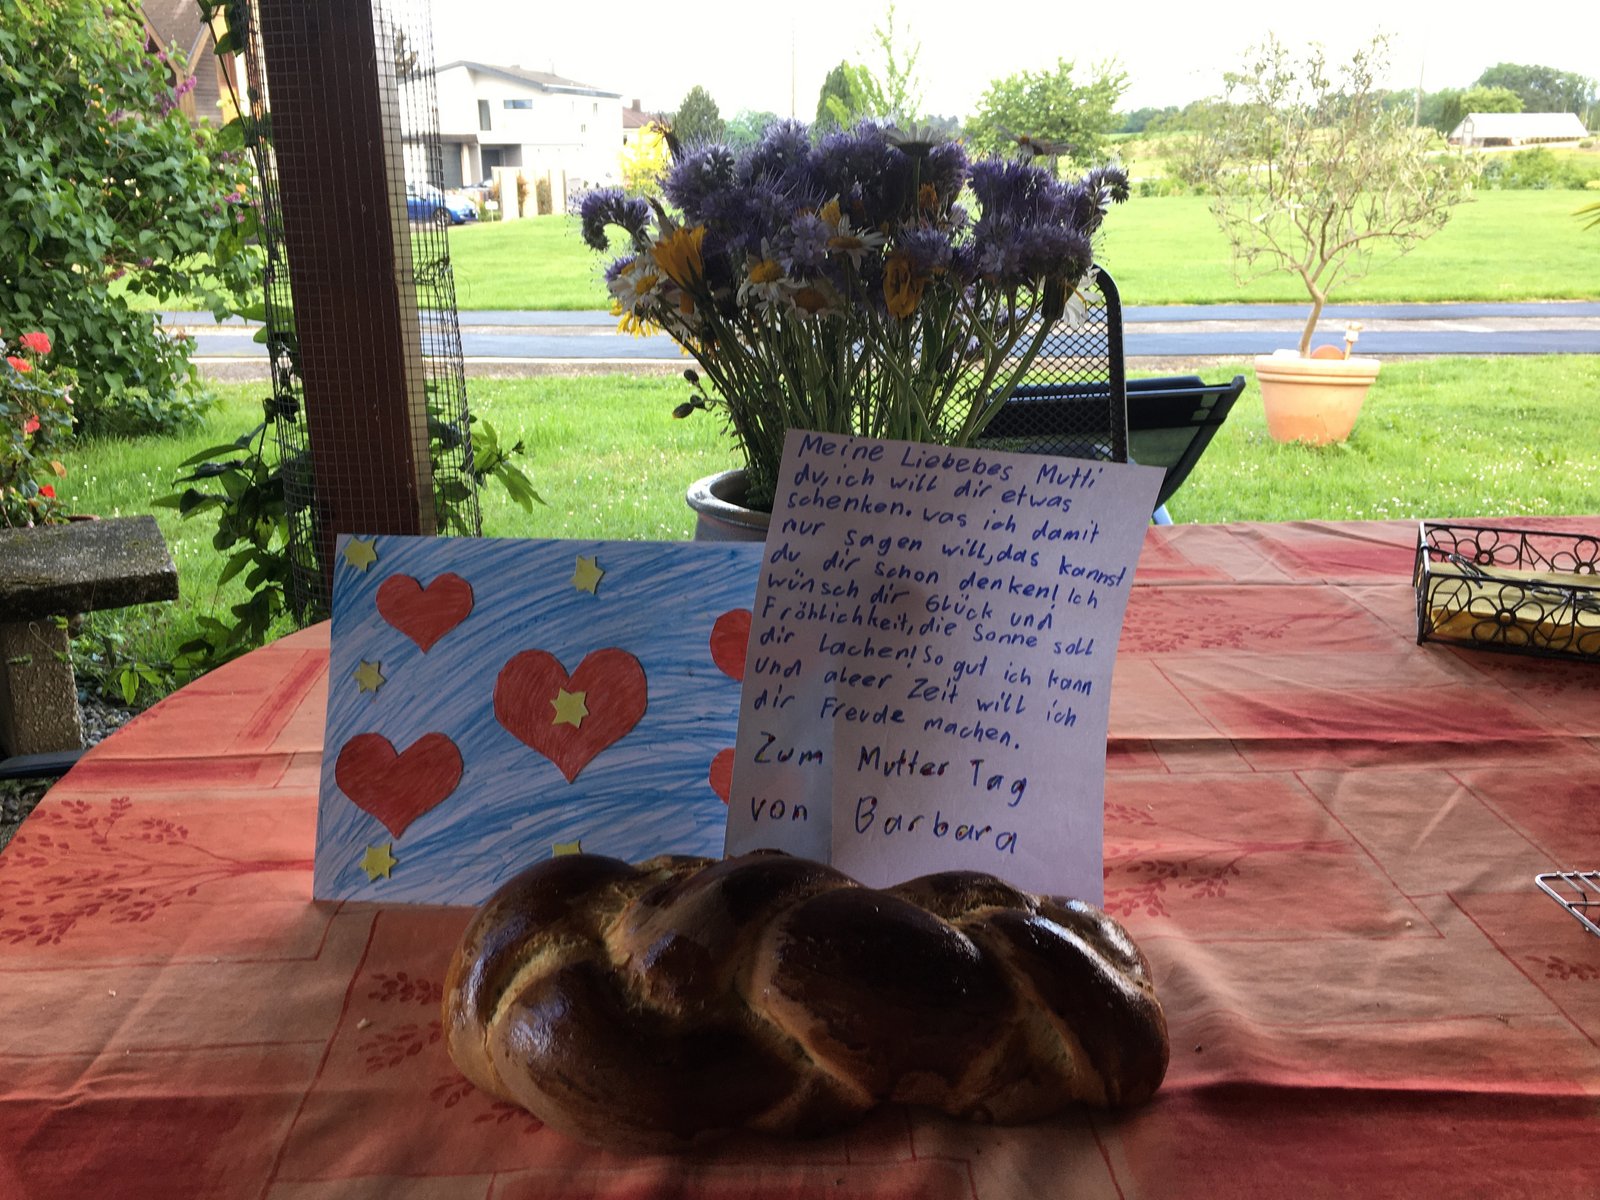 Meine Liebebes Mutti
du, ich will dir etwas
schenken. was ich damit
nur sagen will, das kannst
du dir schon denken! Ich
wünsch dir Glück und
Fröhlichkeit, die Sonne soll
dir Lachen! So gut ich kann
und aleer Zeit will ich
dir Freude machen.
Zum Mutter Tag
von Barbara